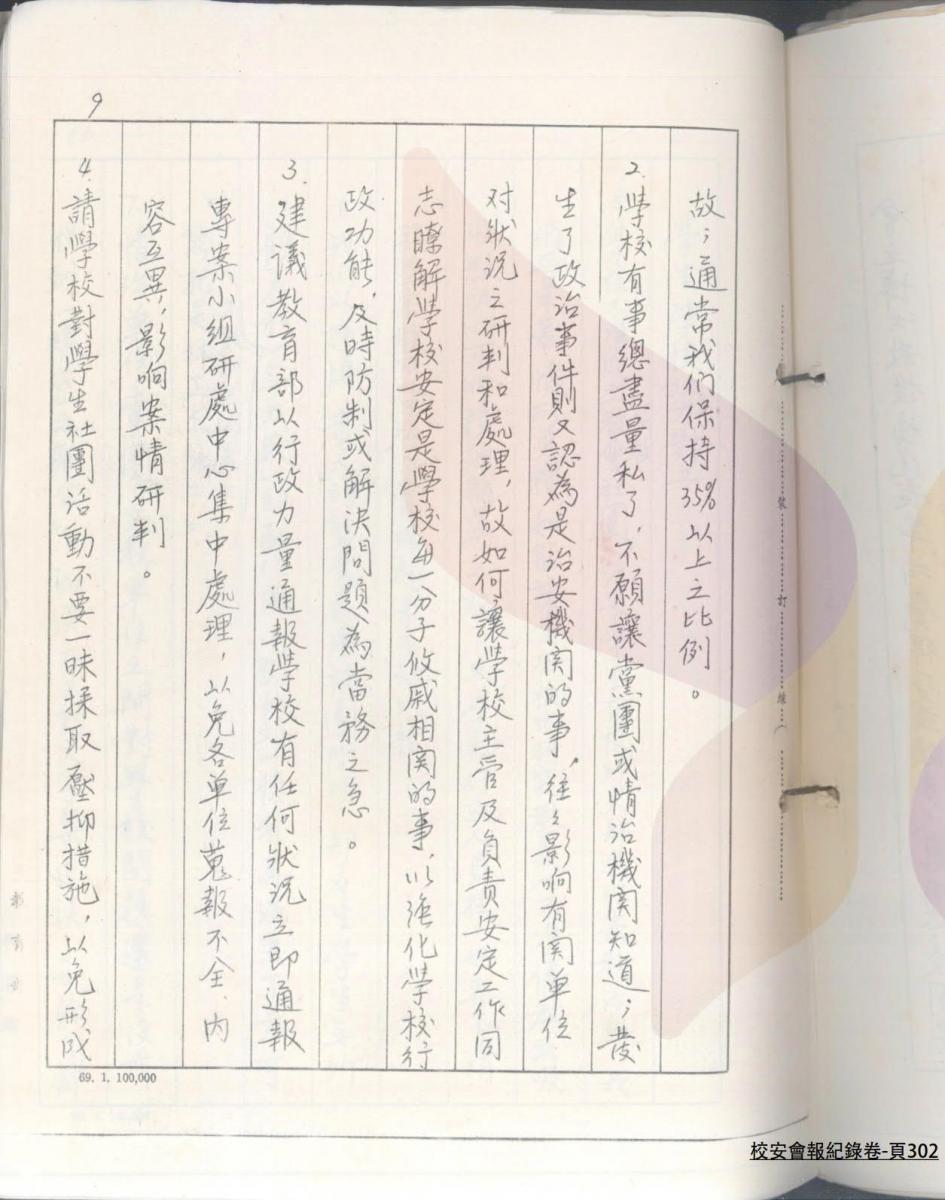 9
故；通常我们保持35%以上之比例。
2.學校有事總盡量私了，不願讓黨團或情治機関知道；發
生了政治事件則又認為是治安機関的事，往々影响有関單位
对狀況之研判和處理，故如何讓學校主管及負責安定工作同
志瞭解學校安定是學校每一分子攸戚相関的事，以強化學校行
政功能，及時防制或解決問題為當務之急。
3.建議教育部以行政力量通報學校有任何狀況立即通報
專案小組研處中心集中處理，以免各單位蒐報不全、内
容互異，影响案情研判。
4.請學校對學生社團活動不要一昧採取壓抑措施，以免形成
69. 1. 100,000
裝訂線
校安會報紀錄卷-頁302